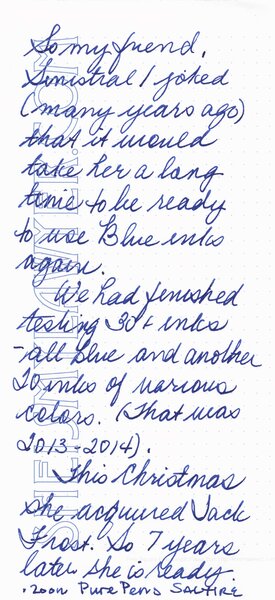 So my friend,
Sinistral I joked
(many years ago)
that it would
take her a long
time to be ready
to use Blue inks
again.
We had finished
testing 30+ inks
- all blue and another
20 inks of various
colors. (That was
2013-2014).
This Christmas
she acquired Jack
Frost. So 7 years
later she is ready.
.200n Pure Pens Saltire